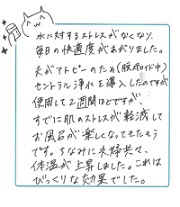 水に対するストレスがなくなり、
毎日の快適度が上がりました。
夫がアトピーのため(脱ステロイド中)
セントラル浄水を導入したのですが
使用して2週間ほどですが、
すでに肌のストレスが軽減して
お風呂が楽しくなってきたそう
です。ちなみに夫婦共々、
体温が上昇しました。これは
びっくりな効果でした。